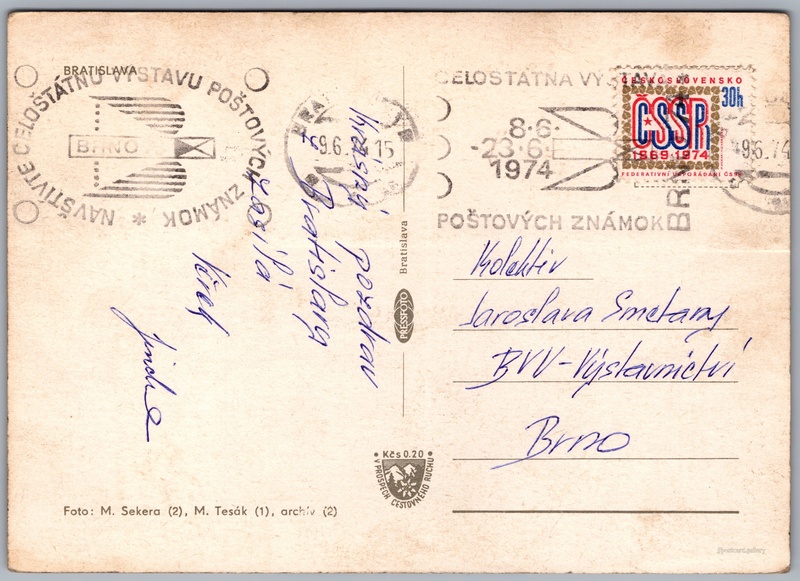 BRATISLAVA
NAVŠTIVTE CELOŠTÁTNU VÝSTAVU POŠTOVÝCH ZNÁMOK *
BRNO
BRA
-9.6.74-15
CELOSTATNA VÝ
8.6.
-23.6.
1974
POŠTOVÝCH ZNÁMOK
BR
-9.6.74
ČESKOSLOVENSKO
30h
ČSSR
1969 1974
FEDERATIVNÍ USPOŘÁDÁNÍ ČSSR
Krásný pozdrav
z Bratislavy
zasílá
Jindra
Bratislava
PRESSFOTO
Kolektiv
Jaroslava Smetany
BVV-Výstavnictví
Brno
Kčs 0.20
V PROSPECH CESTOVNÉHO RUCHU
Foto: M. Sekera (2), M. Tesák (1), archív (2)